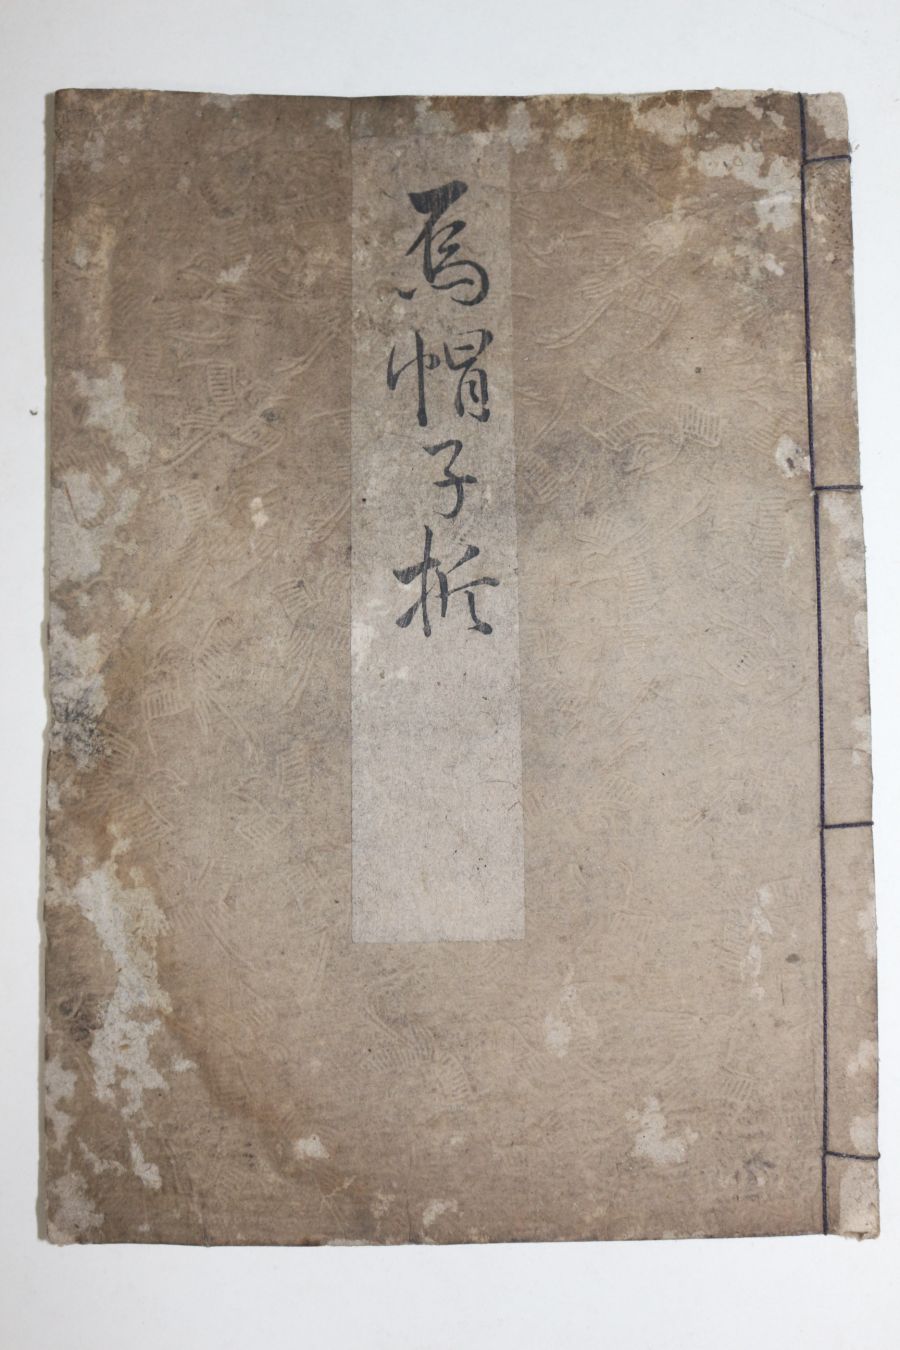 烏帽子折